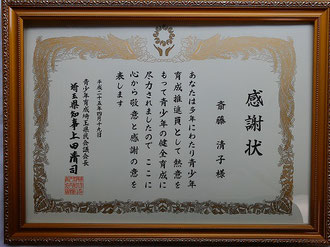 感謝状
斎藤 清子 様
あなたは多年にわたり青少年
育成推進員として熱意を
もって青少年の健全育成に
尽力されましたので ここに
心から敬意と感謝の意を
表します
平成二十五年四月十九日
青少年育成埼玉県民会議会長
埼玉県知事 上田清司